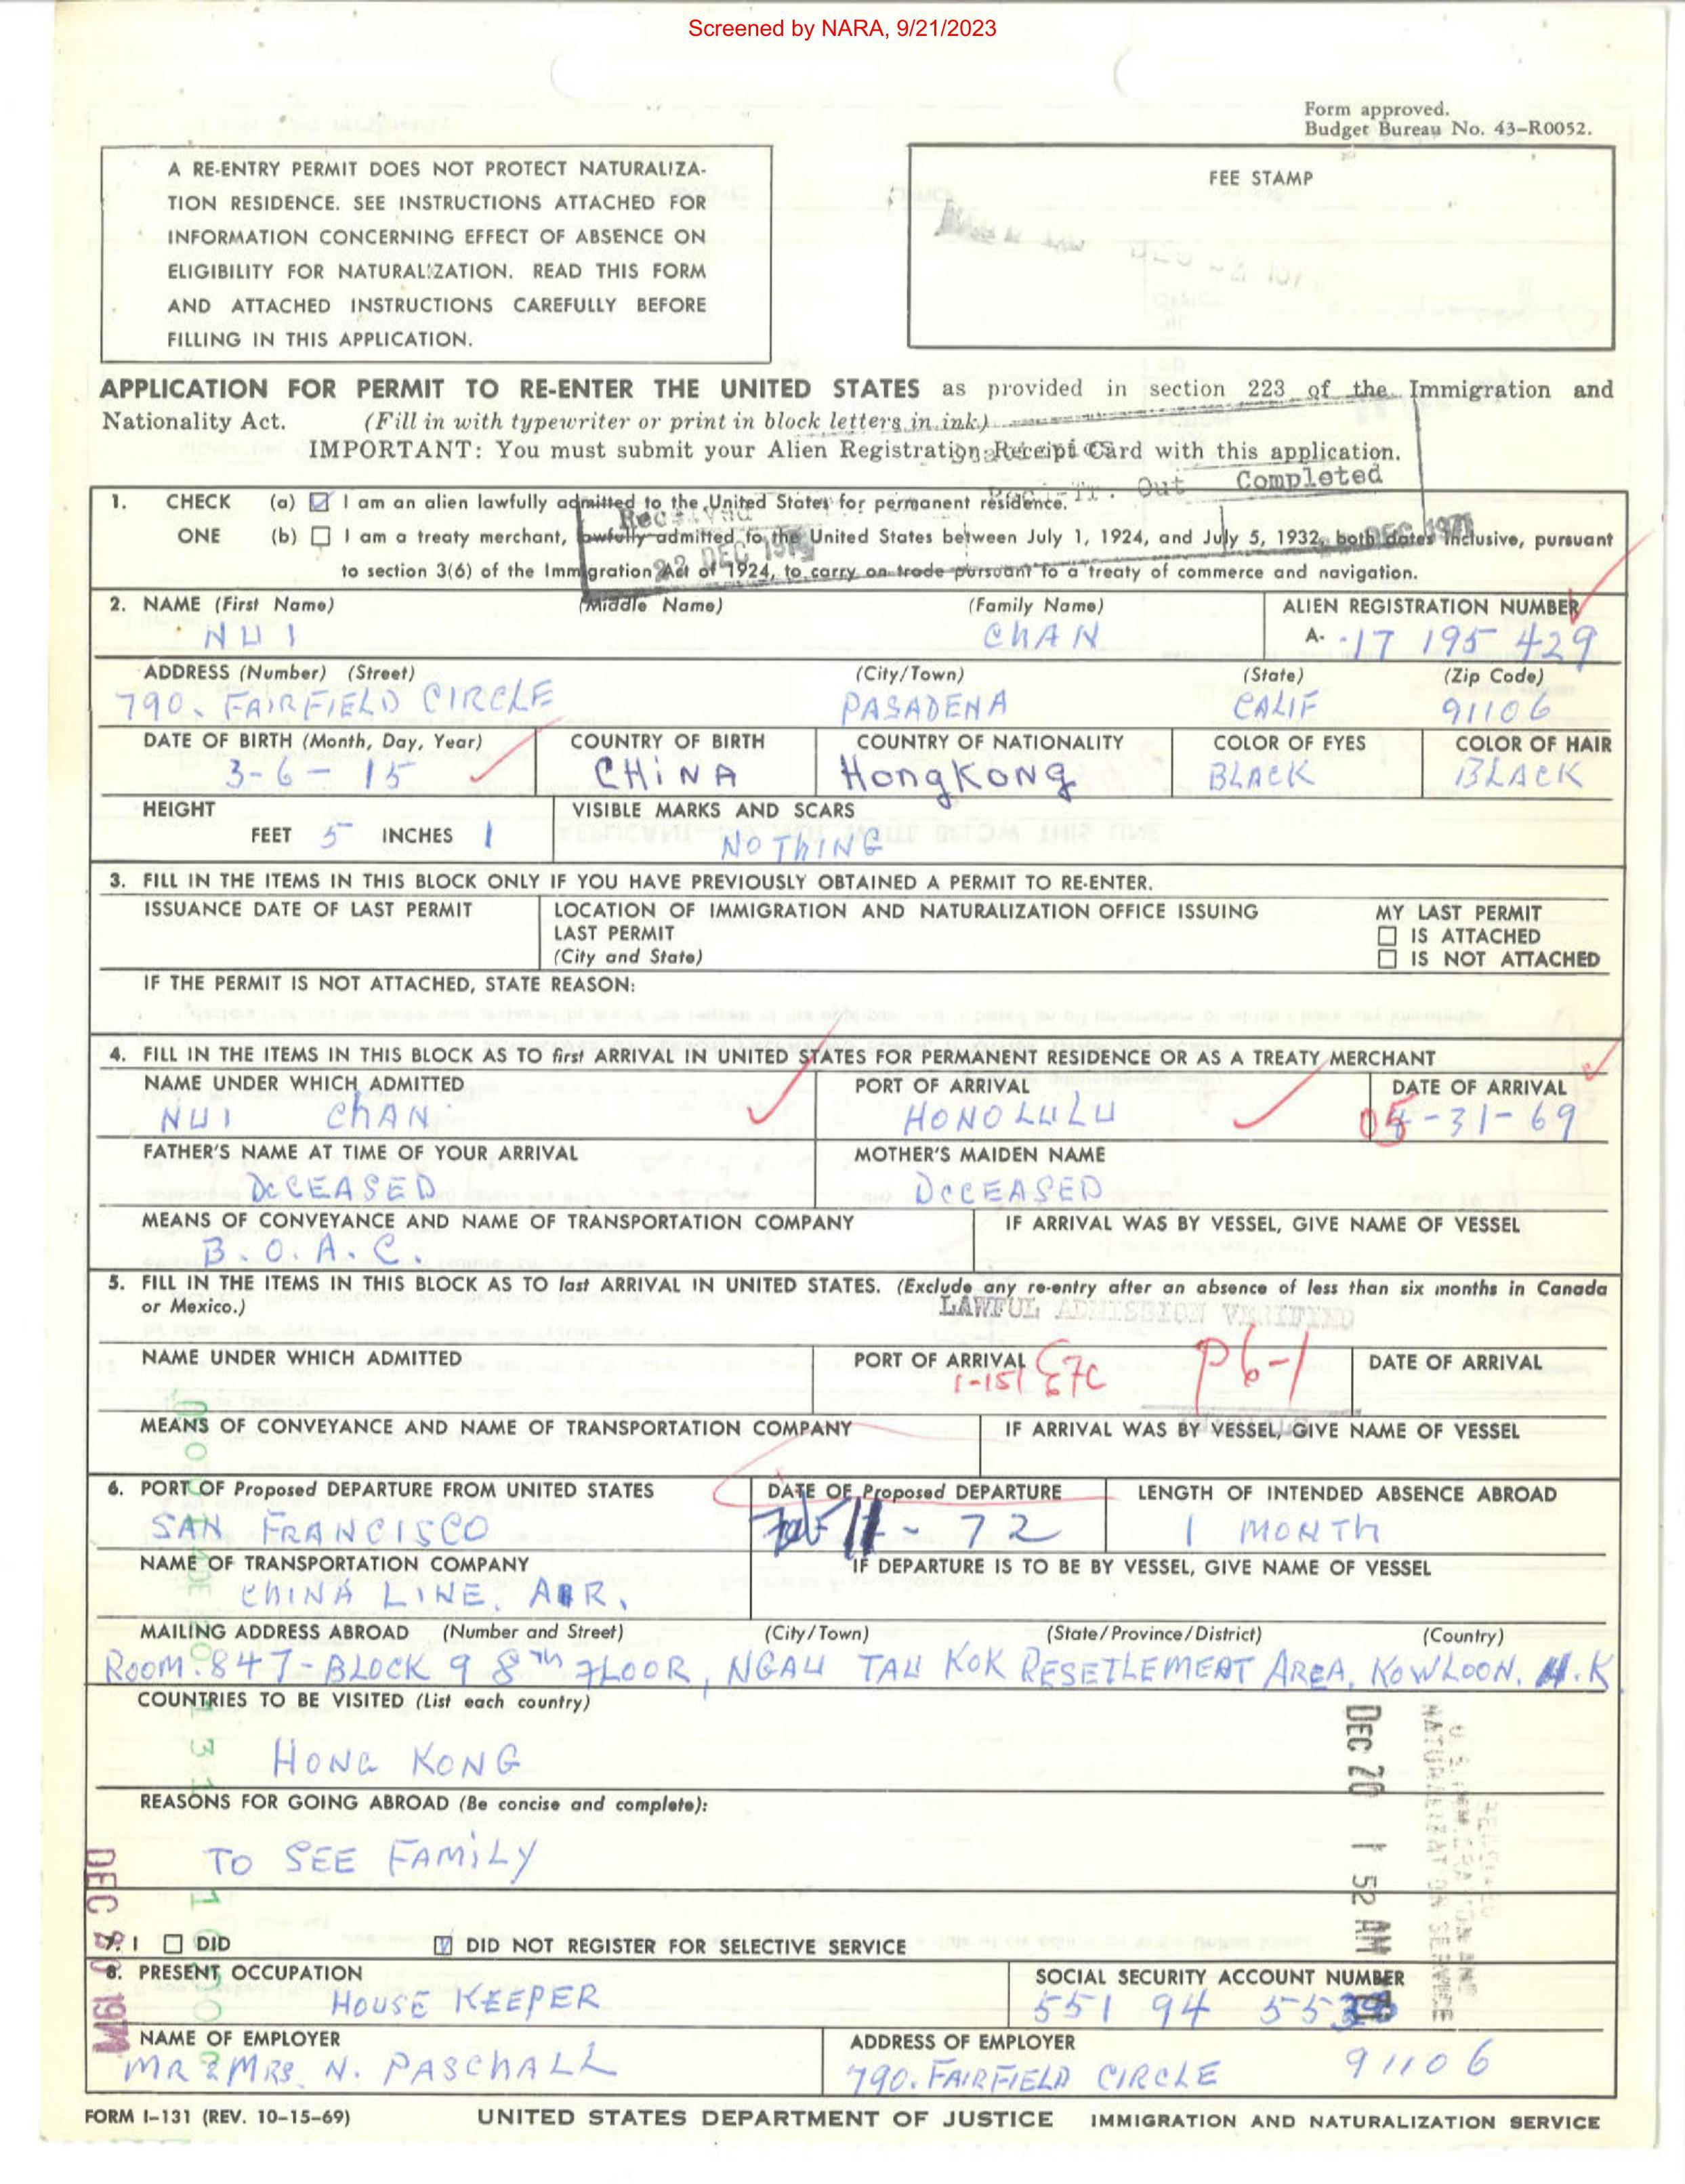 Screened by NARA, 9/21/2023
Form approved.
Budget Bureau No. 43-R0052.
A RE-ENTRY PERMIT DOES NOT PROTECT NATURALIZA-
TION RESIDENCE. SEE INSTRUCTIONS ATTACHED FOR
INFORMATION CONCERNING EFFECT OF ABSENCE ON
ELIGIBILITY FOR NATURALIZATION. READ THIS FORM
AND ATTACHED INSTRUCTIONS CAREFULLY BEFORE
FILLING IN THIS APPLICATION.
FEE STAMP
APPLICATION FOR PERMIT TO RE-ENTER THE UNITED STATES as provided in section 223 of the Immigration and
Nationality Act. (Fill in with typewriter or print in block letters in ink)
IMPORTANT: You must submit your Alien Registration Receipt Card with this application.
Out Completed
1. CHECK (a) I am an alien lawfully admitted to the United States for permanent residence.
Received
ONE (b) I am a treaty merchant, lawfully admitted to the United States between July 1, 1924, and July 5, 1932, both dates inclusive, pursuant
22 DEC 1971
DEC 1971
to section 3(6) of the Immigration Act of 1924, to carry on trade pursuant to a treaty of commerce and navigation.
2. NAME (First Name) (Middle Name) (Family Name) ALIEN REGISTRATION NUMBER
NUI ChAN A- 17 195 429
ADDRESS (Number) (Street) (City/Town) (State) (Zip Code)
790. FAIRFIELD CIRCLE PASADENA CALIF 91106
DATE OF BIRTH (Month, Day, Year) COUNTRY OF BIRTH COUNTRY OF NATIONALITY COLOR OF EYES COLOR OF HAIR
3-6-15 CHiNA HongKong BLACK BLACK
HEIGHT VISIBLE MARKS AND SCARS
FEET 5 INCHES 1 NOThING
3. FILL IN THE ITEMS IN THIS BLOCK ONLY IF YOU HAVE PREVIOUSLY OBTAINED A PERMIT TO RE-ENTER.
ISSUANCE DATE OF LAST PERMIT LOCATION OF IMMIGRATION AND NATURALIZATION OFFICE ISSUING MY LAST PERMIT
LAST PERMIT IS ATTACHED
(City and State) IS NOT ATTACHED
IF THE PERMIT IS NOT ATTACHED, STATE REASON:
4. FILL IN THE ITEMS IN THIS BLOCK AS TO first ARRIVAL IN UNITED STATES FOR PERMANENT RESIDENCE OR AS A TREATY MERCHANT
NAME UNDER WHICH ADMITTED PORT OF ARRIVAL DATE OF ARRIVAL
NUI ChAN HONOLULU 05-31-69
FATHER'S NAME AT TIME OF YOUR ARRIVAL MOTHER'S MAIDEN NAME
DCCEASED DCCEASED
MEANS OF CONVEYANCE AND NAME OF TRANSPORTATION COMPANY IF ARRIVAL WAS BY VESSEL, GIVE NAME OF VESSEL
B.O.A.C.
5. FILL IN THE ITEMS IN THIS BLOCK AS TO last ARRIVAL IN UNITED STATES. (Exclude any re-entry after an absence of less than six months in Canada
or Mexico.)
LAWFUL ADMISSION VERIFIED
NAME UNDER WHICH ADMITTED PORT OF ARRIVAL P6-1 DATE OF ARRIVAL
1-151
MEANS OF CONVEYANCE AND NAME OF TRANSPORTATION COMPANY IF ARRIVAL WAS BY VESSEL, GIVE NAME OF VESSEL
6. PORT OF Proposed DEPARTURE FROM UNITED STATES DATE OF Proposed DEPARTURE LENGTH OF INTENDED ABSENCE ABROAD
SAN FRANCISCO 11-72 1 MONTh
NAME OF TRANSPORTATION COMPANY IF DEPARTURE IS TO BE BY VESSEL, GIVE NAME OF VESSEL
ChINA LINE. AIR.
MAILING ADDRESS ABROAD (Number and Street) (City/Town) (State/Province/District) (Country)
ROOM.847-BLOCK 9 8Th FLOOR, NGAU TAU KOK RESETLEMEAT AREA, KOWLOON. H.K
COUNTRIES TO BE VISITED (List each country)
HONG KONG
REASONS FOR GOING ABROAD (Be concise and complete):
TO SEE FAMiLY
DEC 20 1 52 AM
DEC 20 1971
7. I DID DID NOT REGISTER FOR SELECTIVE SERVICE
8. PRESENT OCCUPATION SOCIAL SECURITY ACCOUNT NUMBER
HOUSE KEEPER 551 94
NAME OF EMPLOYER ADDRESS OF EMPLOYER
MR & MRS. N. PASChALL 790. FAIRFIELD CIRCLE 91106
FORM I-131 (REV. 10-15-69) UNITED STATES DEPARTMENT OF JUSTICE IMMIGRATION AND NATURALIZATION SERVICE